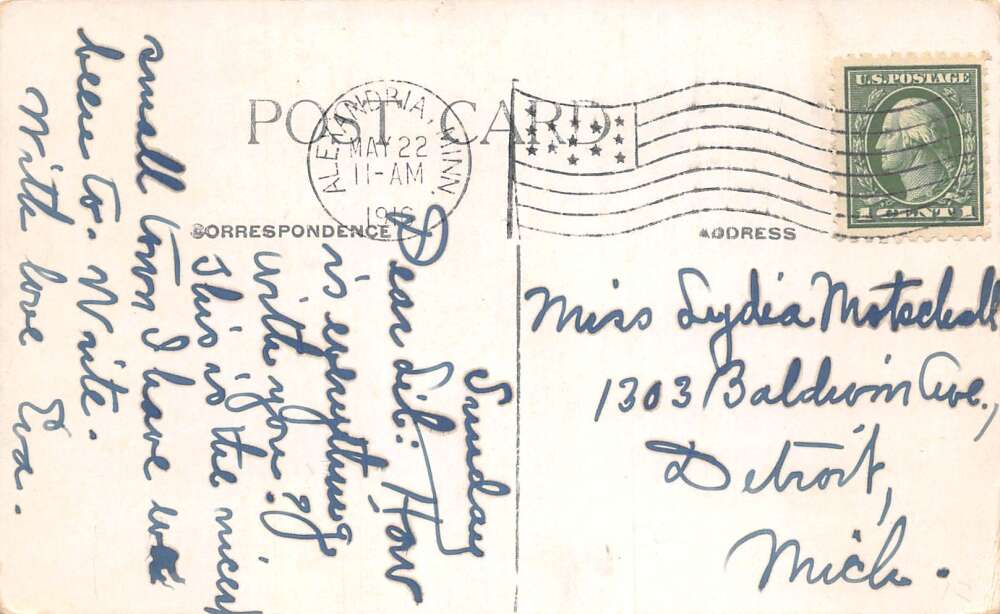 POST CARD
ALEXANDRIA, MINN.
MAY 22
11-AM
U.S. POSTAGE
1 CENT 1
CORRESPONDENCE
ADDRESS
Sunday
Dear Lil: How
is everything
with you?
This is the nicest
small town I have
been to. Write.
With love Eva.
Miss Lydia Motschall
1303 Baldwin Ave.,
Detroit,
Mich.